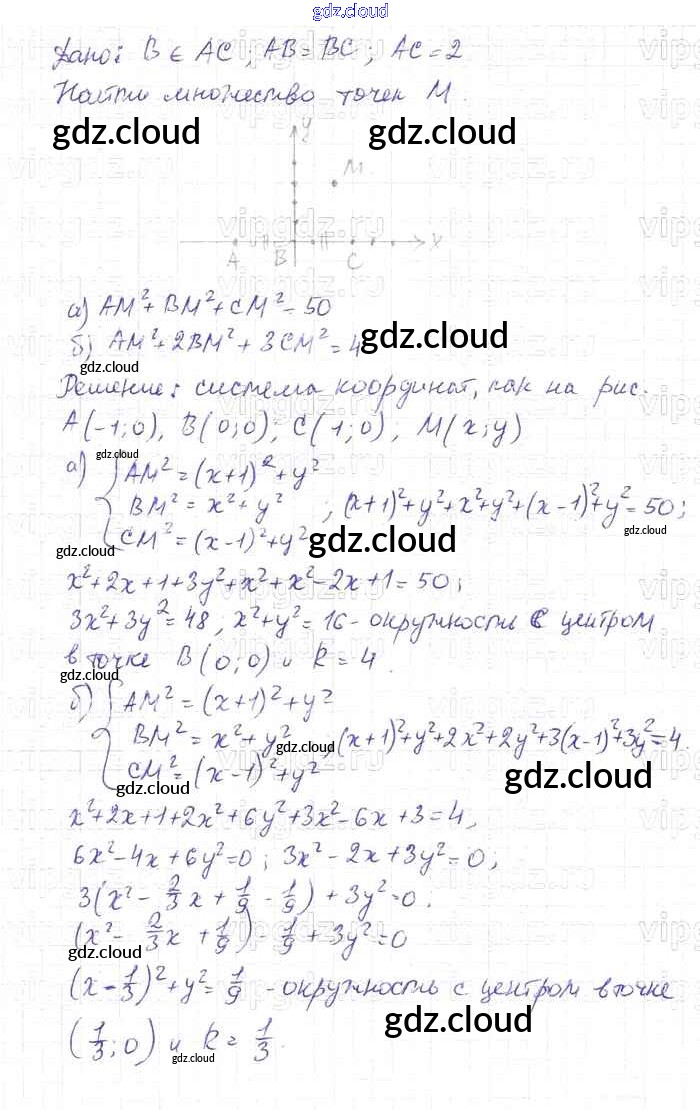 gdz.cloud
Дано: B ∈ AC; AB = BC; AC = 2
Найти множество точек M.
gdz.cloud gdz.cloud
y
M
A B C x
а) AM²+BM²+CM²=50
б) AM²+2BM²+3CM²=4
gdz.cloud
gdz.cloud
Решение: система координат, как на рис.
A(-1;0), B(0;0), C(1;0); M(x;y)
gdz.cloud
а) { AM²=(x+1)²+y²
BM²=x²+y² ; (x+1)²+y²+x²+y²+(x-1)²+y²=50;
CM²=(x-1)²+y²
gdz.cloud gdz.cloud gdz.cloud
x²+2x+1+3y²+x²+x²-2x+1=50;
3x²+3y²=48, x²+y²=16 - окружность с центром
в точке B(0;0) и R=4.
gdz.cloud
б) { AM²=(x+1)²+y²
BM²=x²+y² , (x+1)²+y²+2x²+2y²+3(x-1)²+3y²=4.
gdz.cloud
CM²=(x-1)²+y²
gdz.cloud gdz.cloud
x²+2x+1+2x²+6y²+3x²-6x+3=4,
6x²-4x+6y²=0; 3x²-2x+3y²=0;
3(x²-2/3x+1/9-1/9)+3y²=0.
(x²-2/3x+1/9)-1/9+3y²=0
gdz.cloud
(x-1/3)²+y²=1/9 - окружность с центром в точке
gdz.cloud
(1/3;0) и R=1/3.
gdz.cloud